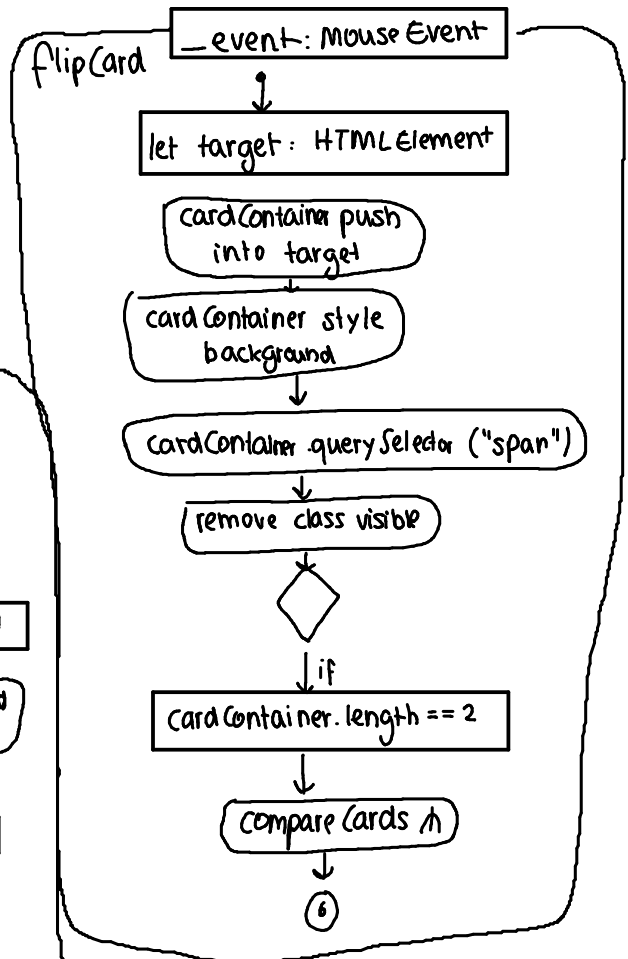 _event: MouseEvent
flipCard
let target: HTMLElement
cardContainer push
into target
cardContainer style
background
cardContainer.querySelector ("span")
remove class visible
if
cardContainer.length == 2
compareCards
6